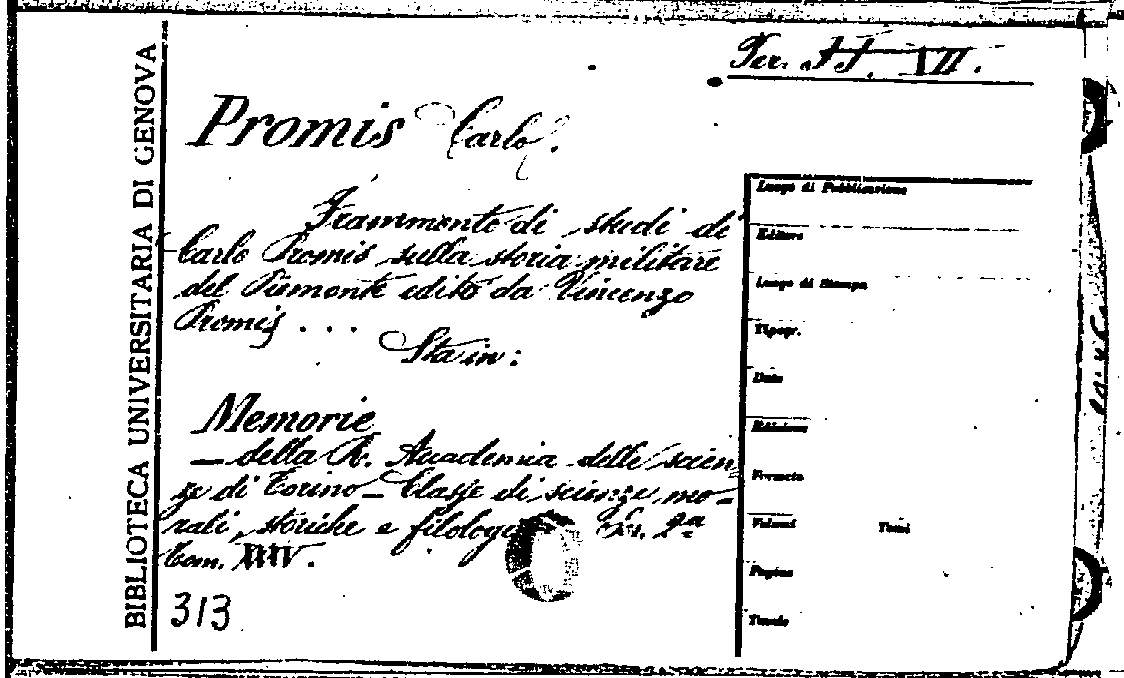 BIBLIOTECA UNIVERSITARIA DI GENOVA
Per. II. XVII.
Promis Carlo.
Frammento di studi di
Carlo Promis sulla storia militare
del Piemonte edito da Vincenzo
Promis ...
Sta in:
Memorie
— della R. Accademia delle scien
ze di Torino — Classe di scienze mo-
rali, storiche e filologi Ser. 2ª
Tom.
313
Luogo di Pubblicazione
Editore
Luogo di Stampa
Tipogr.
Data
Edizione
Formato
Volumi Tomi
Pagine
Tavole